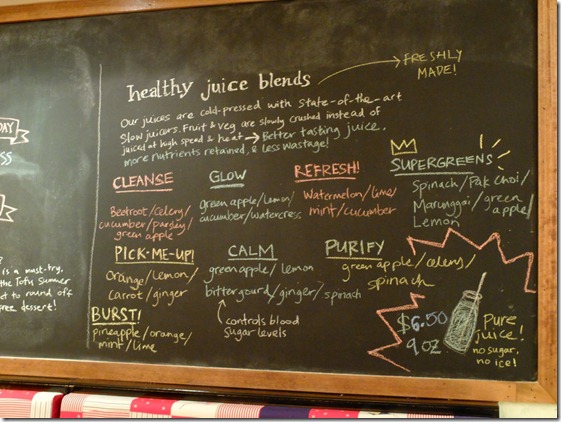 DAY
SS
?
is a must-try.
the Tofu Summer
et to round off
free dessert!
healthy juice blends
FRESHLY
MADE!
Our juices are cold-pressed with state-of-the-art
Slow juicers. Fruit & Veg are slowly crushed instead of
juiced at high speed & heat → Better tasting juice,
more nutrients retained, & less wastage!
CLEANSE
Beetroot/celery/
cucumber/parsley/
green apple
GLOW
green apple/lemon/
cucumber/watercress
REFRESH!
Watermelon/lime/
mint/cucumber
SUPERGREENS
Spinach/Pak choi/
Marunggoi/green
apple/
Lemon
PICK-ME-UP!
Orange/lemon/
Carrot/ginger
CALM
green apple/lemon
bittergourd/ginger/spinach
controls blood
sugar levels
PURIFY
green apple/celery/
spinach
BURST!
pineapple/orange/
mint/lime
$6.50
9oz
Pure
juice!
no sugar,
no ice!